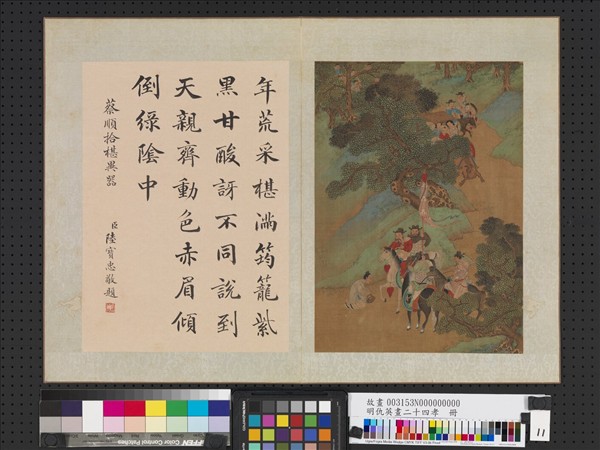 年荒采椹滿筠籠紫
黑甘酸訝不同說到
天親齊動色赤眉傾
倒綠陰中
蔡順拾椹異器
臣陸寶忠敬題
故畫 003153N000000000
明仇英畫二十四孝 冊
11